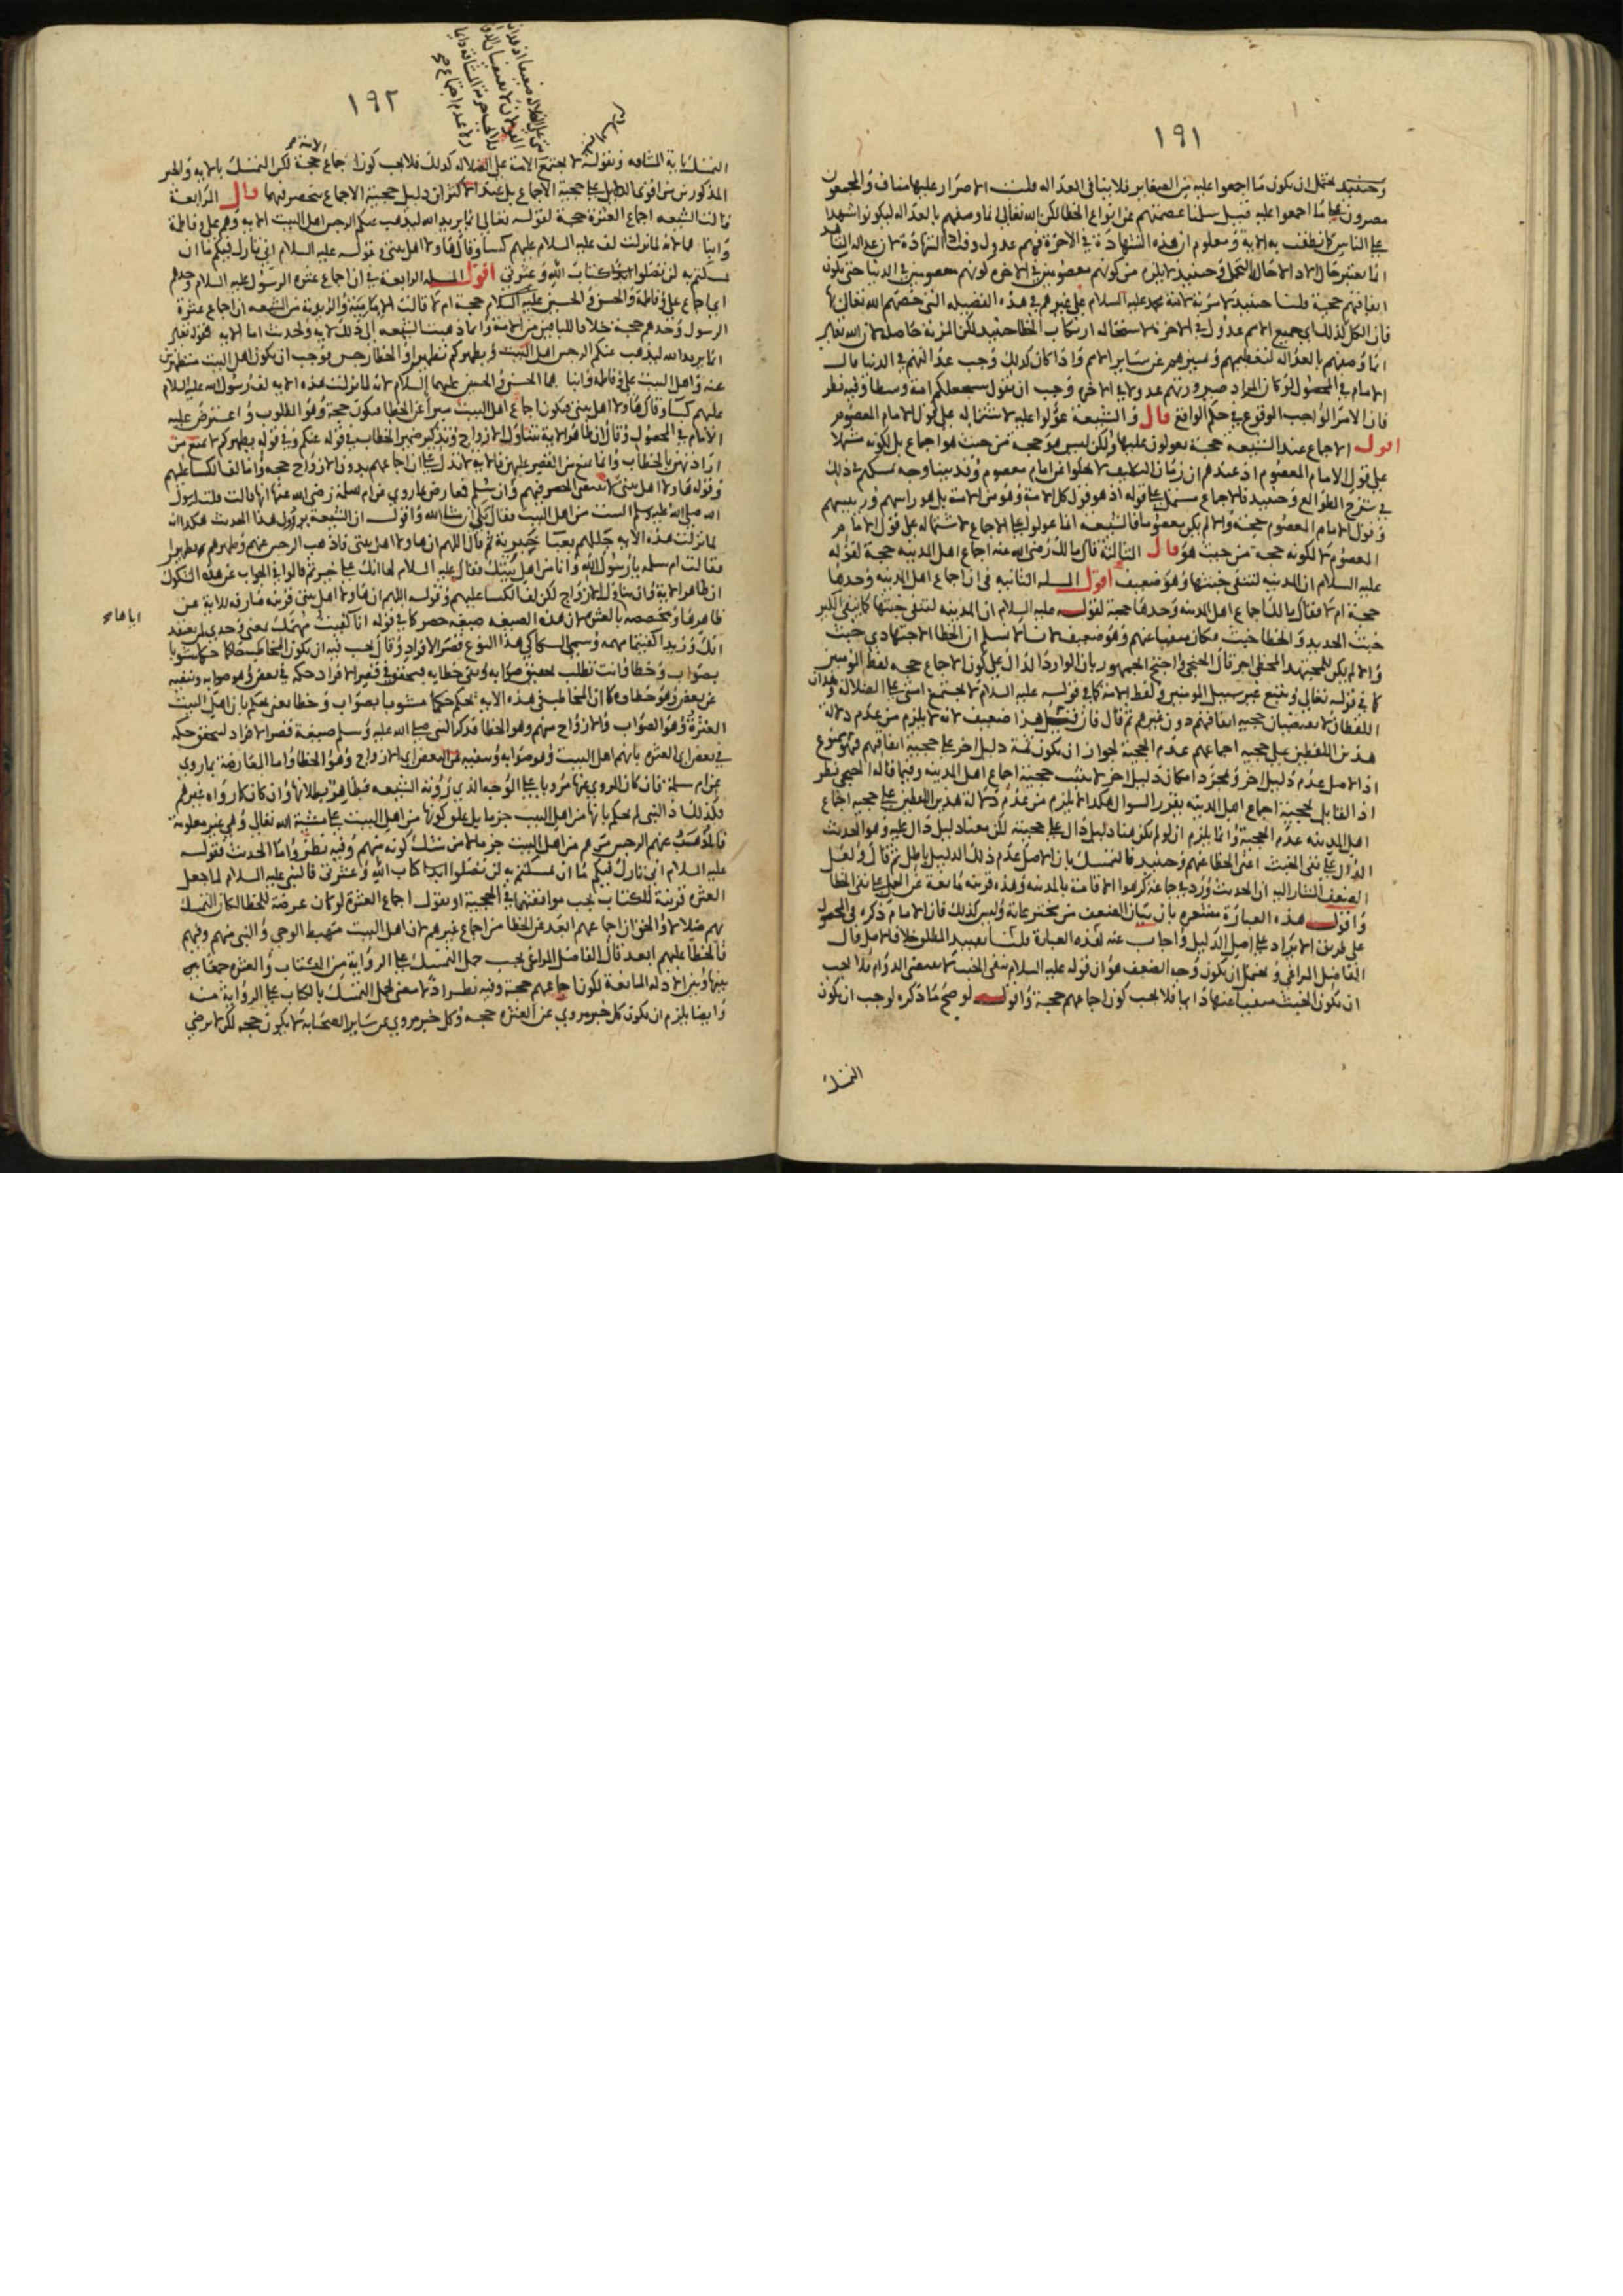 ١٩١
وحينئذ يحتمل ان يكون ما اجمعوا عليه من الصغاير فلا ينافى العداله قلت الاصرار عليها مناف والمجمعون
مصرون على ما اجمعوا عليه قيل سلمنا عصمتهم عن انواع الخطا لكن الله تعالى انما وصفهم بالعداله ليكونوا شهدا
على الناس
ومعلوم ان هذه الشهادة فى الاخرة فهم عدول وقت الشهادة لان عداله الشاهد
انما يعتبر حال الاداء لا حال التحمل وحينئذ لا يلزم من كونهم معصومين فى الاخره كونهم معصومين فى الدنيا حتى يكون
اتفاقهم حجة قلنا حينئذ لا مزية لامة محمد عليه السلام على غيرهم فى هذه الفضيله التى خصهم الله تعالى بها
فان الكل كذلك اى جميع الامم عدول فى الاخرة لاستحاله ارتكاب الخطا حينئذ لكن المزية حاصلة لان الله تعالى
انما وصفهم بالعداله لتعظيمهم وتمييزهم عن ساير الامم واذا كان كذلك وجب عدالتهم فى الدنيا قال
الامام فى المحصول لو كان المراد صيرورتهم عدولا فى الاخره وجب ان يقول سنجعلكم امة وسطا وفيه نظر
فان الامر الواجب الوقوع فى حكم الواقع قال والشيعة عولوا عليه لاشتماله على قول الامام المعصوم
اقول الاجماع عند الشيعه حجة يعولون عليها ولكن ليس هو حجة من حيث هو اجماع بل لكونه مشتملا
على قول الامام المعصوم اذ عندهم ان زمان التكليف لا يخلوا عن امام معصوم وقد بينا وجه تمسكهم فى ذلك
فى شرح الطوالع وحينئذ فالاجماع مشتمل على قوله اذ هو قول كل الامة وهو من الامة بل هو راسهم ورييسهم
وقول الامام المعصوم حجة والا لم يكن معصوما فالشيعه انما عولوا على الاجماع لاشتماله على قول الامام
المعصوم لا لكونه حجة من حيث هو قال الثالثة قال مالك رضى الله عنه اجماع اهل المدينه حجة لقوله
عليه السلام ان المدينه لتنفى خبثها وهو ضعيف اقول المسله الثانيه فى ان اجماع اهل المدينه وحدها
حجة ام لا فقال مالك اجماع اهل المدينه وحدها حجة لقوله عليه السلام ان المدينه لتنفى خبثها كما ينفى الكير
خبث الحديد والخطا خبث فكان منفيا عنهم وهو ضعيف لانا لا نسلم ان الخطا الاجتهادى خبث
والا لم يكن للمجتهد المخطى اجر قال الخنجى واحتج الجمهور بان الوارد الدال على كون الاجماع حجه لفظ المومنين
كما فى قوله تعالى ويتبع غير سبيل المومنين ولفظ الامة كما فى قوله عليه السلام لا تجتمع امتى على الضلالة وهذان
اللفظان لا يقتضيان حجية اتفاقهم دون غيرهم ثم قال فان قيل هذا ضعيف لانه لا يلزم من عدم دلالة
هذين اللفظين على حجية اجماعهم عدم الحجية لجواز ان يكون ثمة دليل اخر على حجية اتفاقهم فهو ممنوع
اذ الاصل عدم دليل اخر ومجرد امكان دليل اخر لا يثبت حجية اجماع اهل المدينه وفيما قاله الخنجى نظر
اذ القايل بحجية اجماع اهل المدينه يقرر السوال هكذا لا يلزم من عدم دلالة هذين اللفظين على حجية اجماع
اهل المدينه عدم الحجية وانما يلزم ان لو لم يكن هنا دليل دال على حجيته لكن معنا دليل دال عليه وهو الحديث
الدال على نفى الخبث اعنى الخطا عنهم وحينئذ فالتمسك بان الاصل عدم ذلك الدليل باطل ثم قال ولعل
الضعف المشار اليه ان الحديث ورد فى جماعة كرهوا الاقامة بالمدينه وهذه قرينه مانعة عن الحمل على نفى الخطا
واقول هذه العبارة
على طريق الايراد على اصل الدليل واجاب عنه
الفاضل المراغى ويحتمل ان يكون وجه الضعف هو ان قوله عليه السلام تنفى الخبث لا يقتضى الدوام فلا يجب
ان يكون الخبث منفيا عنها دايما فلا يجب كون اجماعهم حجية واقول لو صح ما ذكره لوجب ان يكون
التمسك
١٩٢
التمسك باية المشاقه وبقوله لا تجتمع الامة على الضلاله كذلك فلا يجب كون اجماع الامة حجة لكن التمسك بالاية والخبر
المذكورين من اقوى الدلايل على حجية الاجماع بل عند الاكثر ان دليل حجية الاجماع منحصر فيهما قال الرابعة
قالت الشيعه اجماع العترة حجة لقوله تعالى انما يريد الله ليذهب عنكم الرجس اهل البيت الايه وهم على وفاطمة
وابناهما لانه لما نزلت لف عليه السلام عليهم كساء وقال هاولا اهل بيتى وقوله عليه السلام انى تارك فيكم ما ان
تمسكتم به لن تضلوا ابدا كتاب الله وعترتى اقول المسله الرابعة فى ان اجماع عتره الرسول عليه السلام وحدهم
اى اجماع على وفاطمة والحسن والحسين عليهم السلام حجة ام لا قالت الامامية والزيدية من الشيعه ان اجماع عترة
الرسول وحدهم حجية خلافا للباقين من الامة وانما ذهبت الشيعه الى ذلك للايه والحديث اما الايه فقوله تعالى
انما يريد الله ليذهب عنكم الرجس اهل البيت ويطهركم تطهيرا والخطا رجس فوجب ان يكون اهل البيت متطهرين
عنه واهل البيت على وفاطمه وابناهما الحسن والحسين عليهما السلام لانه لما نزلت هذه الايه لف رسول الله عليه السلام
عليهم كساء وقال هاولا اهل بيتى فيكون اجماع اهل البيت مبرا عن الخطا فيكون حجة وهو المطلوب واعترض عليه
الامام فى المحصول وقال ان ظاهر الاية يتناول الازواج وتذكير ضمير الخطاب فى قوله عنكم وفى قوله يطهركم لا يمنع من
ارادتهن بالخطاب
وقوله هاولا اهل بيتى لا يقتضى الحصر فيهم وان سلم فمعارض بما روى عن ام سلمة رضى الله عنها انها قالت قلت لرسول
الله صلى الله عليه وسلم الست من اهل البيت فقال بلى ان شا الله واقول ان الشيعة يروون هذا الحديث هكذا انه
لما نزلت هذه الايه جللهم بعبا خيبرية ثم قال اللهم ان هاولا اهل بيتى فاذهب الرجس عنهم وطهرهم تطهيرا
فقالت ام سلمه يا رسول الله وانا من اهل بيتك فقال عليه السلام لها انك على خير ثم قالوا فى الجواب عن هذه الشكوك
ان ظاهر الاية وان يتناول الازواج لكن لف الكسا عليهم وقوله اللهم ان هاولا اهل بيتى قرينه صارفه للاية عن
ظاهرها ومخصصه بالعترة لان هذه الصيغه صيغه حصر كما فى قوله انا كفيت مهمك بمعنى وحدى لمن يعتقد
انك وزيدا كفيتما مهمه ويسمى السكاكى هذا النوع قصر الافراد وقال يجب فيه ان يكون المخاطب حاكما حكما مشوبا
بصواب وخطا وانت تطلب تحقيق صوابه ونفى خطايه
عن بعض وهو خطاوه
العترة وهو الصواب والازواج منهم وهو الخطا فذكر النبى صلى الله عليه وسلم صيغة قصر الافراد لتحقق حكمه
فى بعض اى العتره بانهم اهل البيت وهو صوابه وينفيه عن البعض اى الازواج وهو الخطا واما المعارضه بما روى
عن ام سلمة فان كان المروى عنها مرويا على الوجه الذى روته الشيعه فظاهر بطلانها وان كان كما رواه غيرهم
فكذلك اذ النبى لم يحكم بانها من اهل البيت جزما بل علق كونها من اهل البيت على مشية الله تعالى وهى غير معلومة
فالمذهب عنهم الرجس هم من اهل البيت جزما لا من شك كونه منهم وفيه نظر واما الحديث فقوله
عليه السلام انى تارك فيكم ما ان تمسكتم به لن تضلوا ابدا كتاب الله وعترتى فالنبى عليه السلام لما جعل
العترة قرينة للكتاب يجب موافقتهما فى الحجية او نقول اجماع العترة لو كان عرضة للخطا لكان التمسك
بهم ضلالا والحق ان اجماعهم ابعد عن الخطا من اجماع غيرهم لان اهل البيت مهبط الوحى والنبى منهم وفيهم
فالخطا عليهم ابعد قال الفاضل المراغى يجب حمل التمسك على الرواية من الكتاب والعتره جمعا بين
بينها وبين الادله المانعة لكون اجماعهم حجة وفيه نظر اذ لا معنى لحمل التمسك بالكتاب على الرواية منه
وايضا يلزم ان يكون كل خبر مروى عن العتره حجه وكل خبر مروى عن ساير الصحابة لا يكون حجه لكن لا يرضى